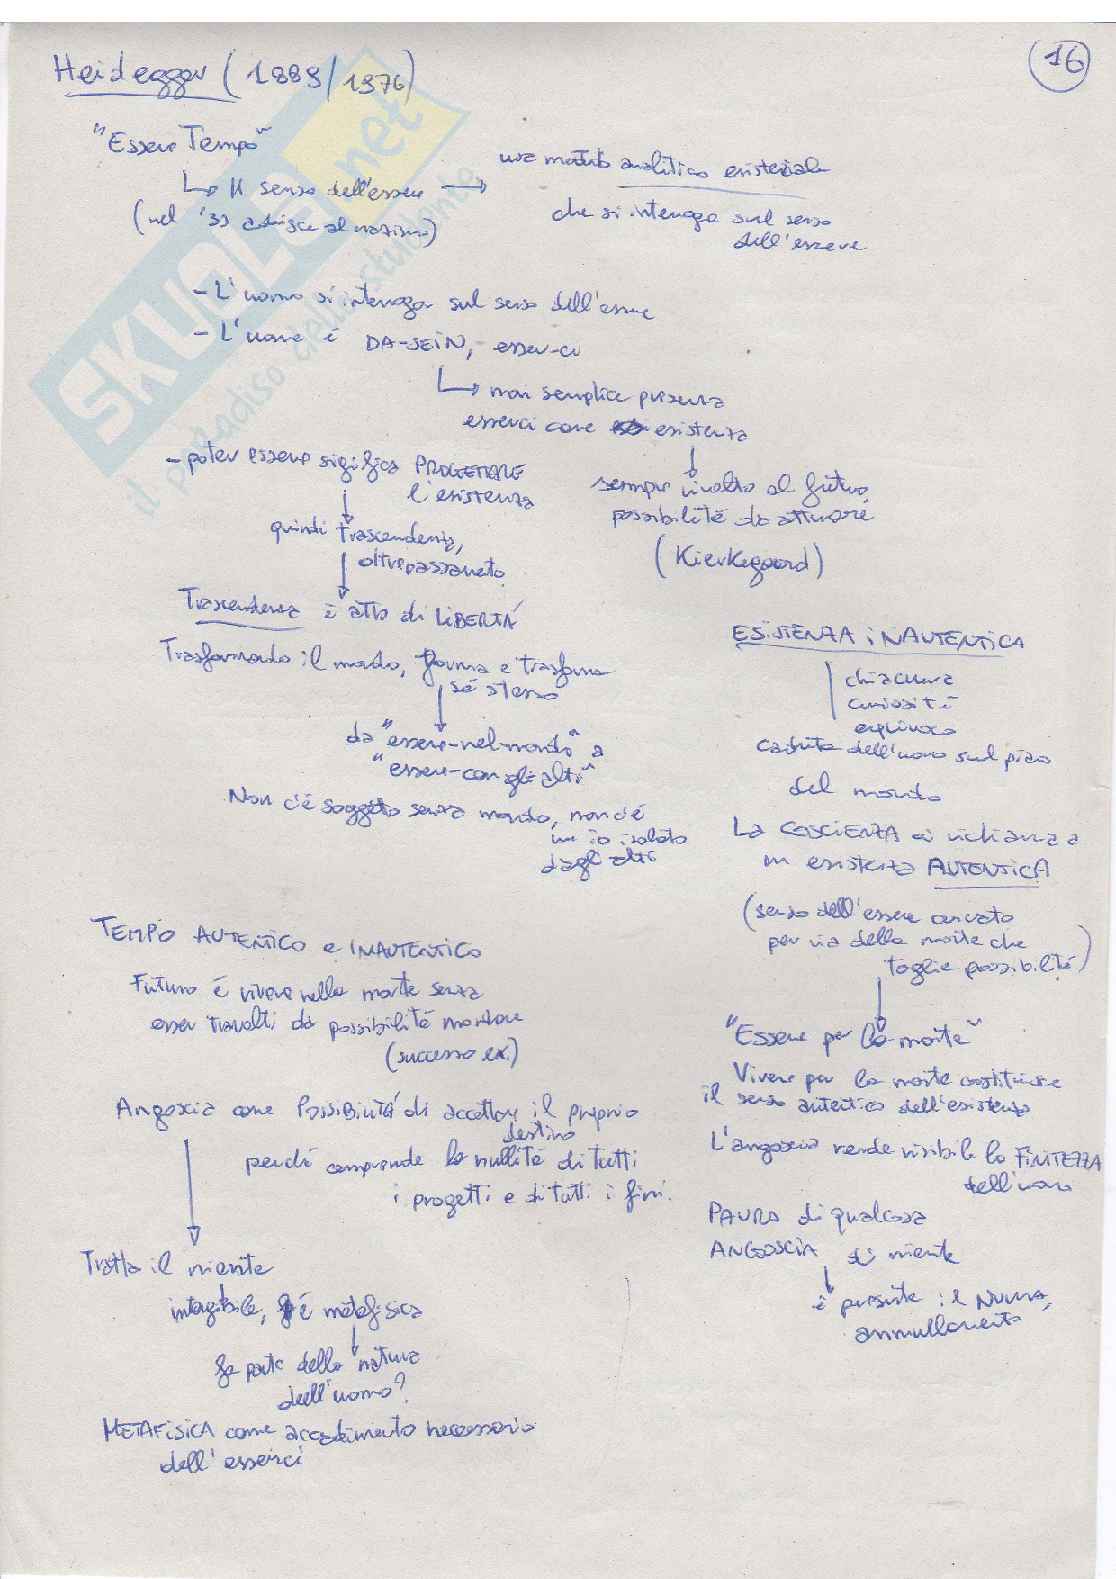 Heidegger (1889/1976)
16
"Essere Tempo"
↳ Il senso dell'essere →
(nel '33 aderisce al nazismo)
usa metodo analitico esistenziale
che si interroga sul senso
dell'essere
- L'uomo si interroga sul senso dell'essere
- L'uomo è DA-SEIN, esser-ci
↳ non semplice presenza
esserci come esistenza
sempre rivolto al futuro,
possibilità da attuare
(Kierkegaard)
- poter essere significa PROGETTARE
l'esistenza
quindi trascendenza,
oltrepassamento
Trascendenza è atto di LIBERTÀ
Trasformando il mondo, forma e trasforma
sé stesso
da "essere-nel-mondo" a
"essere-con gli altri"
Non c'è soggetto senza mondo, non c'è
un io isolato
dagli altri
ESISTENZA INAUTENTICA
chiacchiera
curiosità
equivoco
caduta dell'uomo sul piano
del mondo
La COSCIENZA ci richiama a
un esistenza AUTENTICA
(senso dell'essere cercato
per via della morte che
toglie possibilità)
"Essere per la morte"
Vivere per la morte costituisce
il senso autentico dell'esistenza
L'angoscia rende visibile la FINITEZZA
dell'uomo
PAURA di qualcosa
ANGOSCIA di niente
è presente il NULLA,
annullamento
TEMPO AUTENTICO e INAUTENTICO
Futuro è vivere nella morte senza
esser travolti da possibilità mondane
(successo ex.)
Angoscia come POSSIBILITÀ di accettare il proprio
destino
perché comprende la nullità di tutti
i progetti e di tutti i fini.
Tratta il niente
intangibile, è metafisica
fa parte della natura
dell'uomo?
METAFISICA come accadimento necessario
dell'esserci
SKUOLA.net
il paradiso dello studente